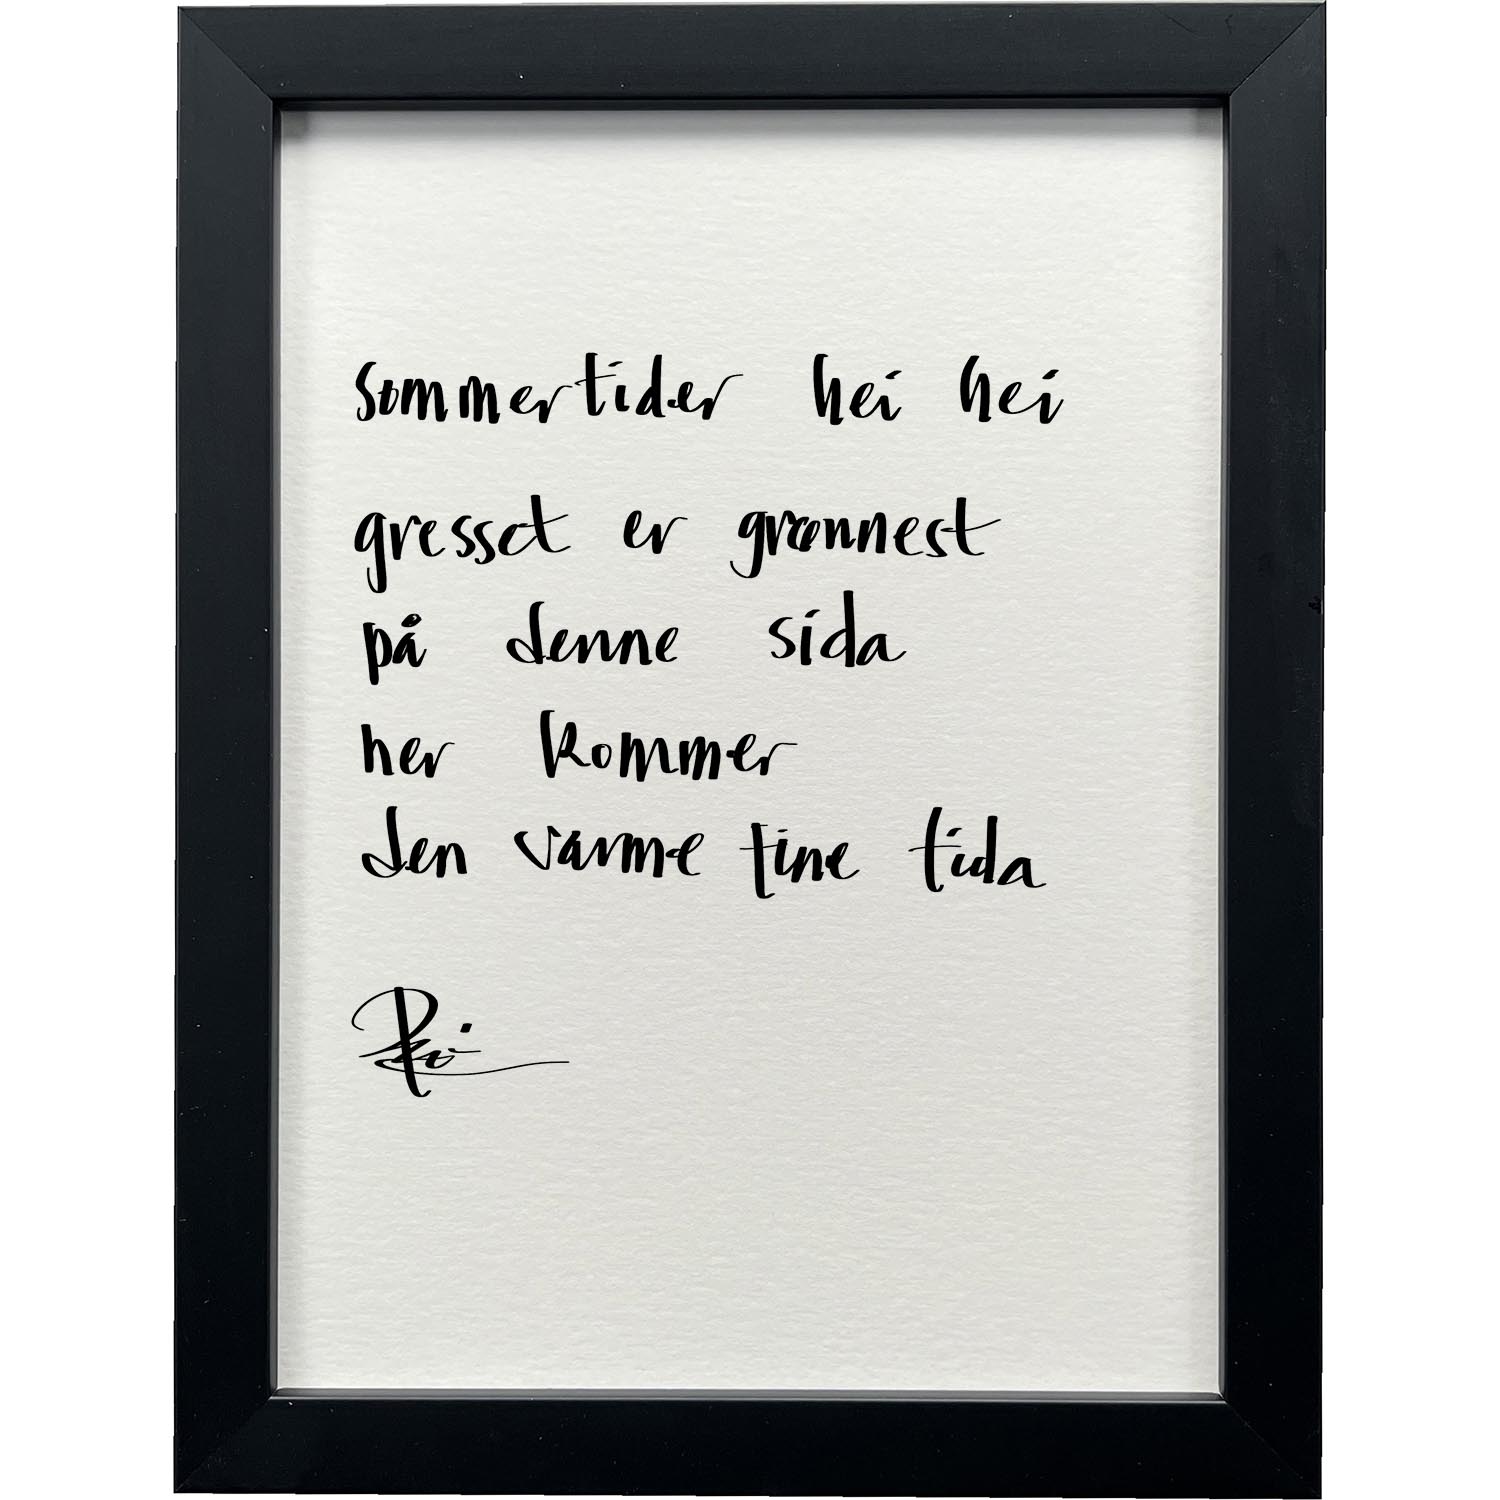 sommertider hei hei
gresset er grønnest
på denne sida
her kommer
den varme fine tida